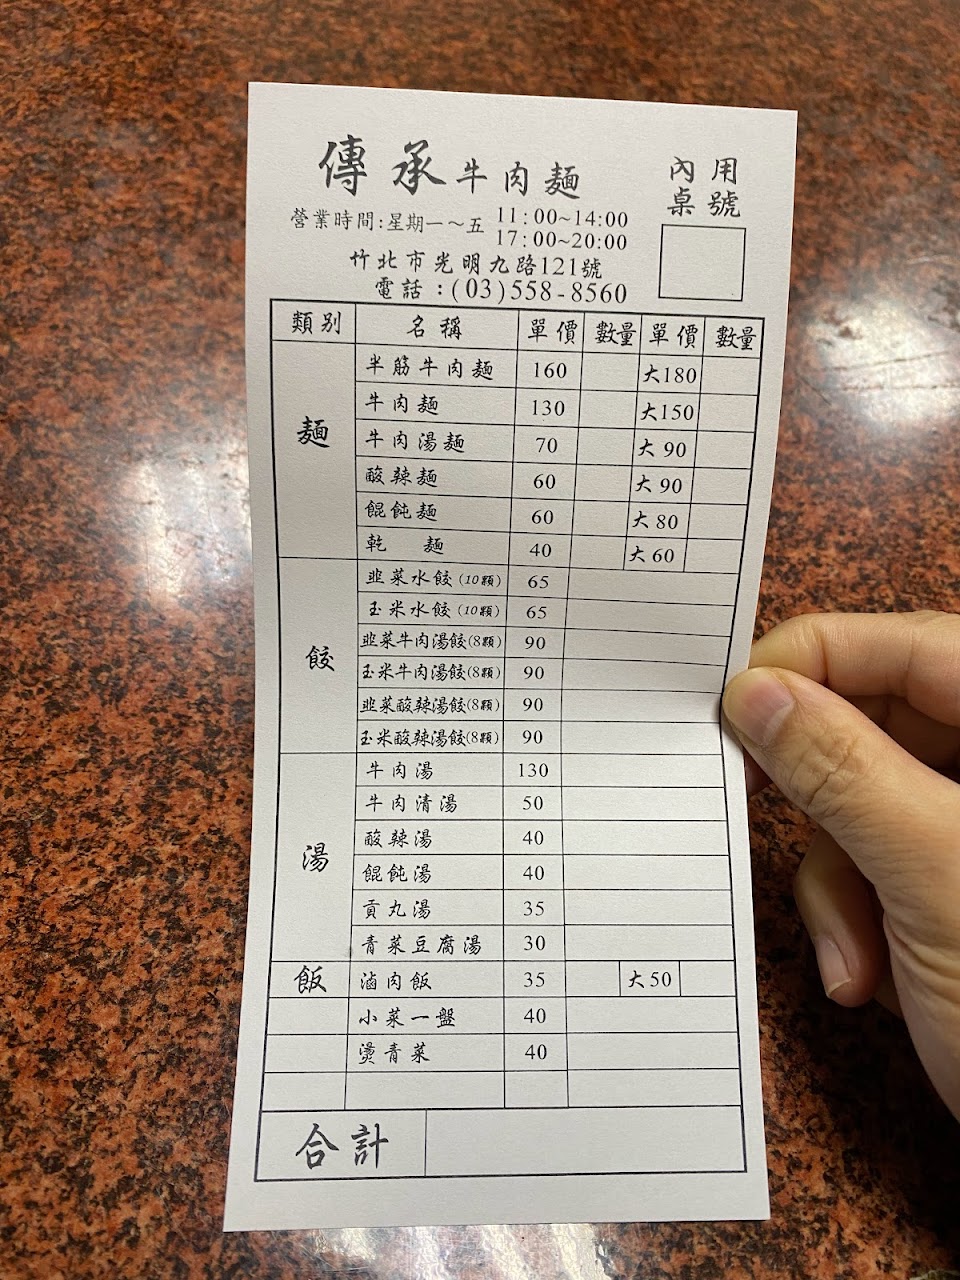 傳承牛肉麵
內用桌號
營業時間:星期一～五 11:00~14:00
17:00~20:00
竹北市光明九路121號
電話:(03)558-8560
類別 名稱 單價 數量 單價 數量
麵
半筋牛肉麵 160 大180
牛肉麵 130 大150
牛肉湯麵 70 大90
酸辣麵 60 大90
餛飩麵 60 大80
乾 麵 40 大60
餃
韭菜水餃(10顆) 65
玉米水餃(10顆) 65
韭菜牛肉湯餃(8顆) 90
玉米牛肉湯餃(8顆) 90
韭菜酸辣湯餃(8顆) 90
玉米酸辣湯餃(8顆) 90
湯
牛肉湯 130
牛肉清湯 50
酸辣湯 40
餛飩湯 40
貢丸湯 35
青菜豆腐湯 30
飯 滷肉飯 35 大50
小菜一盤 40
燙青菜 40
合計